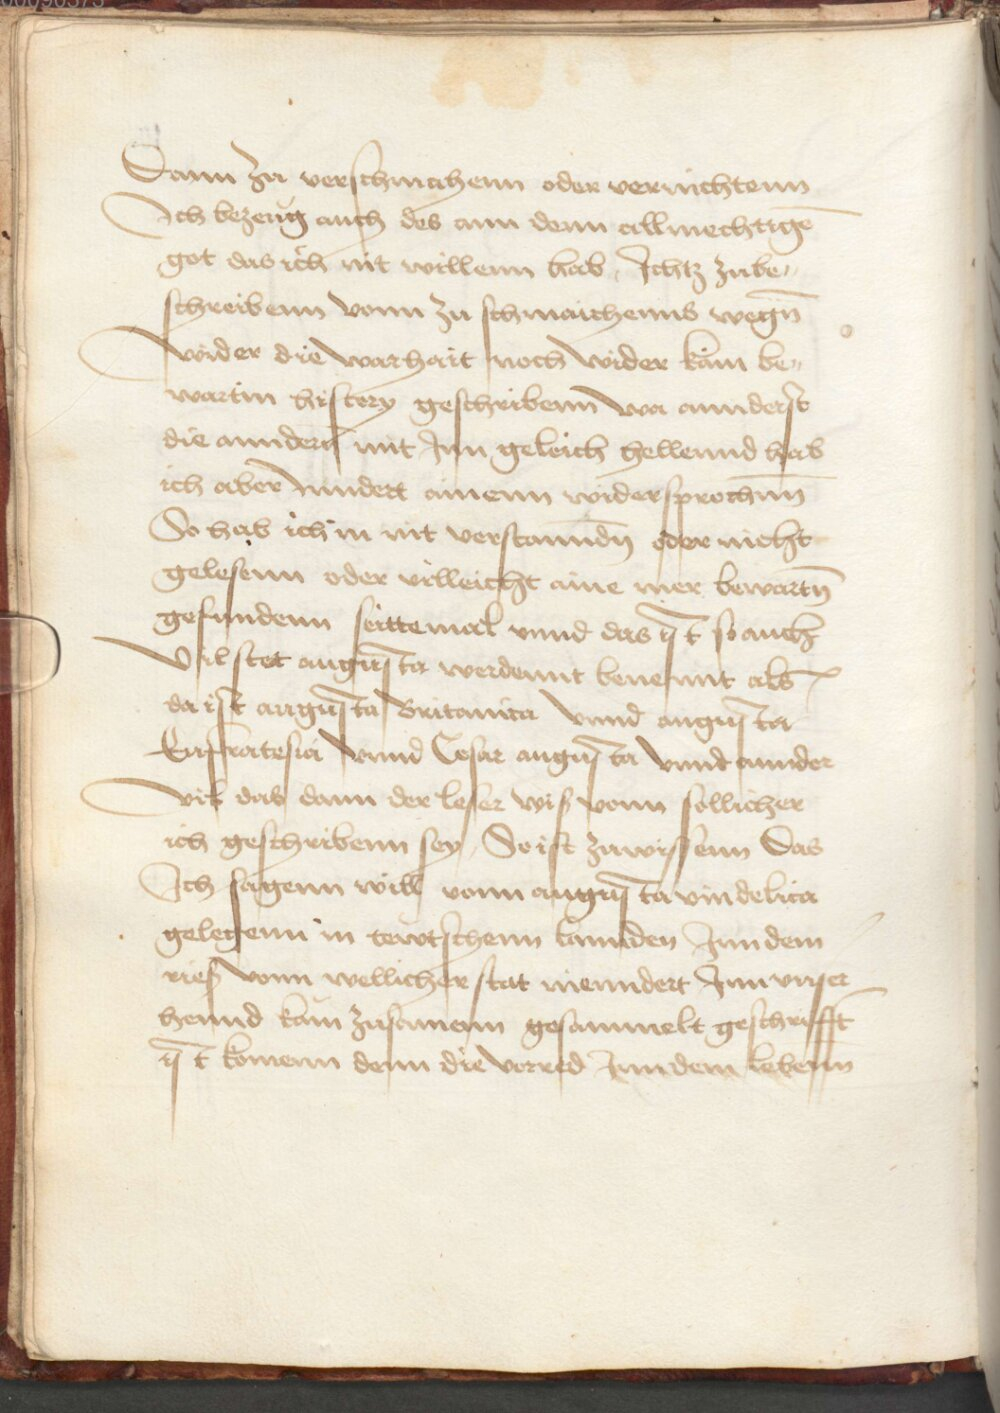 Dann zu verschmahenn oder vernichtenn
Ich bezeug auch des ann denn allmechtigē
got das ich nit willenn hab, Ichtz zu be„
schreibenn vonn zu schmaichenns wegn̄
wider die warhait noch wider kain be„
wartin history geschribenn wa annderst
die anndern mit Inn geleich hellennd hab
ich aber nindert ainenn widersprochnn̄
So hab ich in nit verstanndn̄ oder nicht
gelesenn oder villeicht aine mer bewartn̄
gefundenn seittemal vnnd das ist so auch
Vil stet augusta werdennt benennt als
da ist augusta Britanica Vnnd augusta
Eufratesia Vnnd Cesar augusta Vnnd annder
vil das dann der leser wiß vonn sollicher
ich geschribenn sey, So ist zuwissenn Das
Ich sagenn will vonn augusta vindelica
gelegenn in tewtschenn lannden Inn dem
rieß vonn wellicher stat niendert Inn vnser
hennd kain zusamenn gesammelt geschrifft
ist komenn denn die vorred Inn dem lebenn